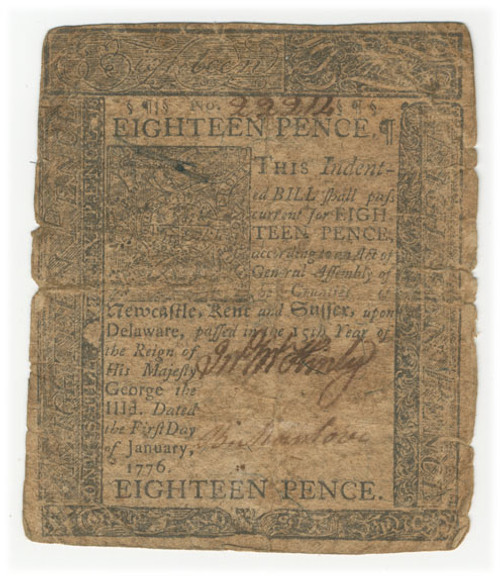 Eighteen Pence
§ ¶§ No. § ¶ §
EIGHTEEN PENCE, ¶
THIS Indent-
ed BILL ſhall paſs
current for EIGH-
TEEN PENCE,
according to an Act of
General Aſſembly of
Counties
Newcaſtle, Kent and Suſſex, upon
Delaware, paſſed in the 15th Year of
the Reign of
His Majeſty
George the
IIId. Dated
the Firſt Day
of January,
1776.
EIGHTEEN PENCE.